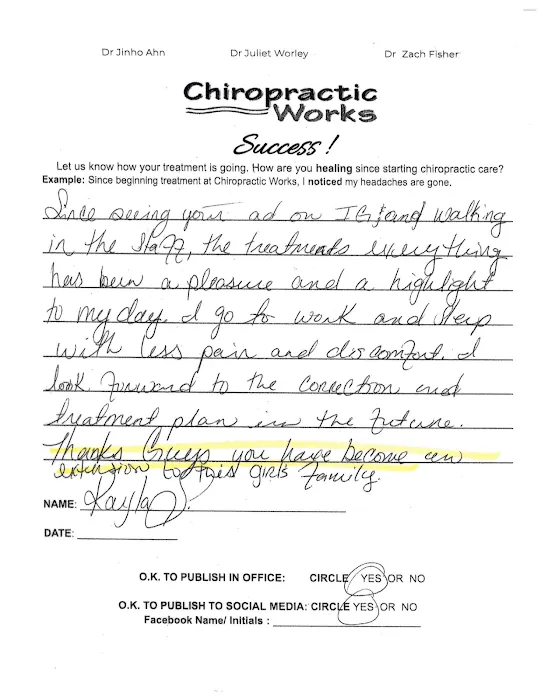 Dr Jinho Ahn Dr Juliet Worley Dr Zach Fisher
Chiropractic
Works
Success!
Let us know how your treatment is going. How are you healing since starting chiropractic care?
Example: Since beginning treatment at Chiropractic Works, I noticed my headaches are gone.
Since seeing your ad on IG, and walking
in the staff, the treatments everything
has been a pleasure and a highlight
to my day. I go to work and sleep
with less pain and discomfort. I
look forward to the correction and
treatment plan in the future.
Thanks Guys you have become an
extension to this girls family.
NAME: Kayla J.
DATE:
O.K. TO PUBLISH IN OFFICE: CIRCLE YES OR NO
O.K. TO PUBLISH TO SOCIAL MEDIA: CIRCLE YES OR NO
Facebook Name/ Initials :